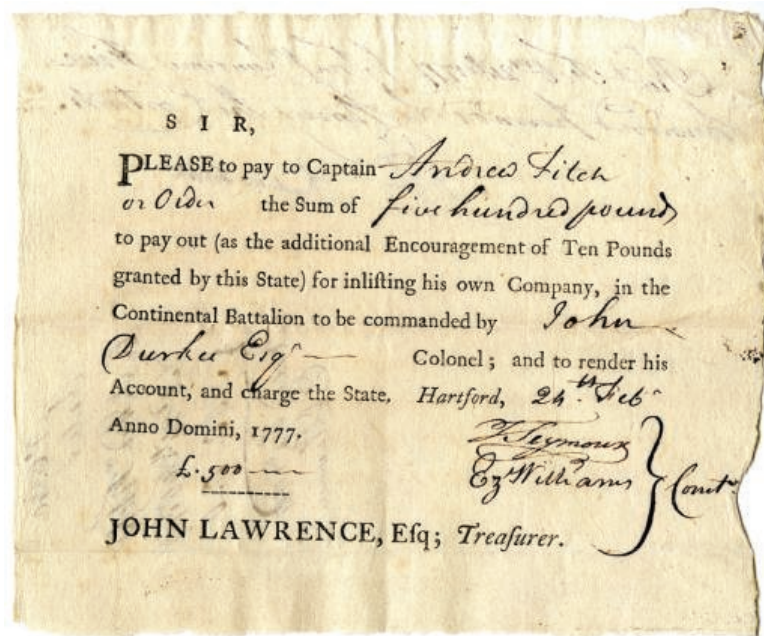 S I R,
PLEASE to pay to Captain Andrew Fitch
or Order the Sum of five hundred pounds
to pay out (as the additional Encouragement of Ten Pounds
granted by this State) for inliſting his own Company, in the
Continental Battalion to be commanded by John
Durkee Esqr Colonel; and to render his
Account, and charge the State. Hartford, 24th Febr
Anno Domini, 1777.
T Seymour
£.500
Ez Williams
Comtee
JOHN LAWRENCE, Eſq; Treaſurer.